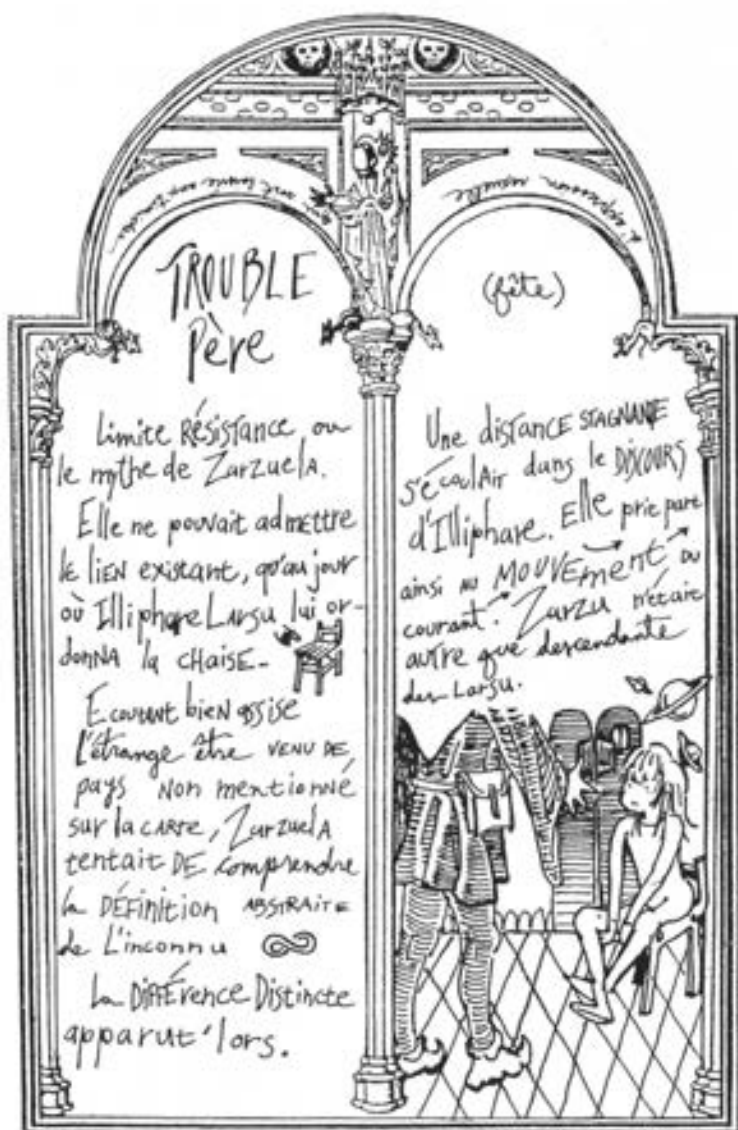 TROUBLE
Père
Limite RÉSISTANCE ou
le mythe de Zarzuela.
Elle ne pouvait admettre
le lien existant, qu'au jour
où Illiphare Larsu lui or-
donna la CHAISE-
Ecoutant bien assise
l'étrange être VENU DE
pays non mentionné
sur la carte, Zarzuela
tentait DE comprendre
la DÉFINITION ABSTRAITE
de L'inconnu
La DIFFÉRENCE Distincte
apparut'lors.
(fête)
Une distance STAGNANTE
s'écoulait dans le DISCOURS
d'Illiphare. Elle prie part
ainsi au MOUVEMENT DU
courant. Zarzu n'était
autre que descendante
des Larsu.